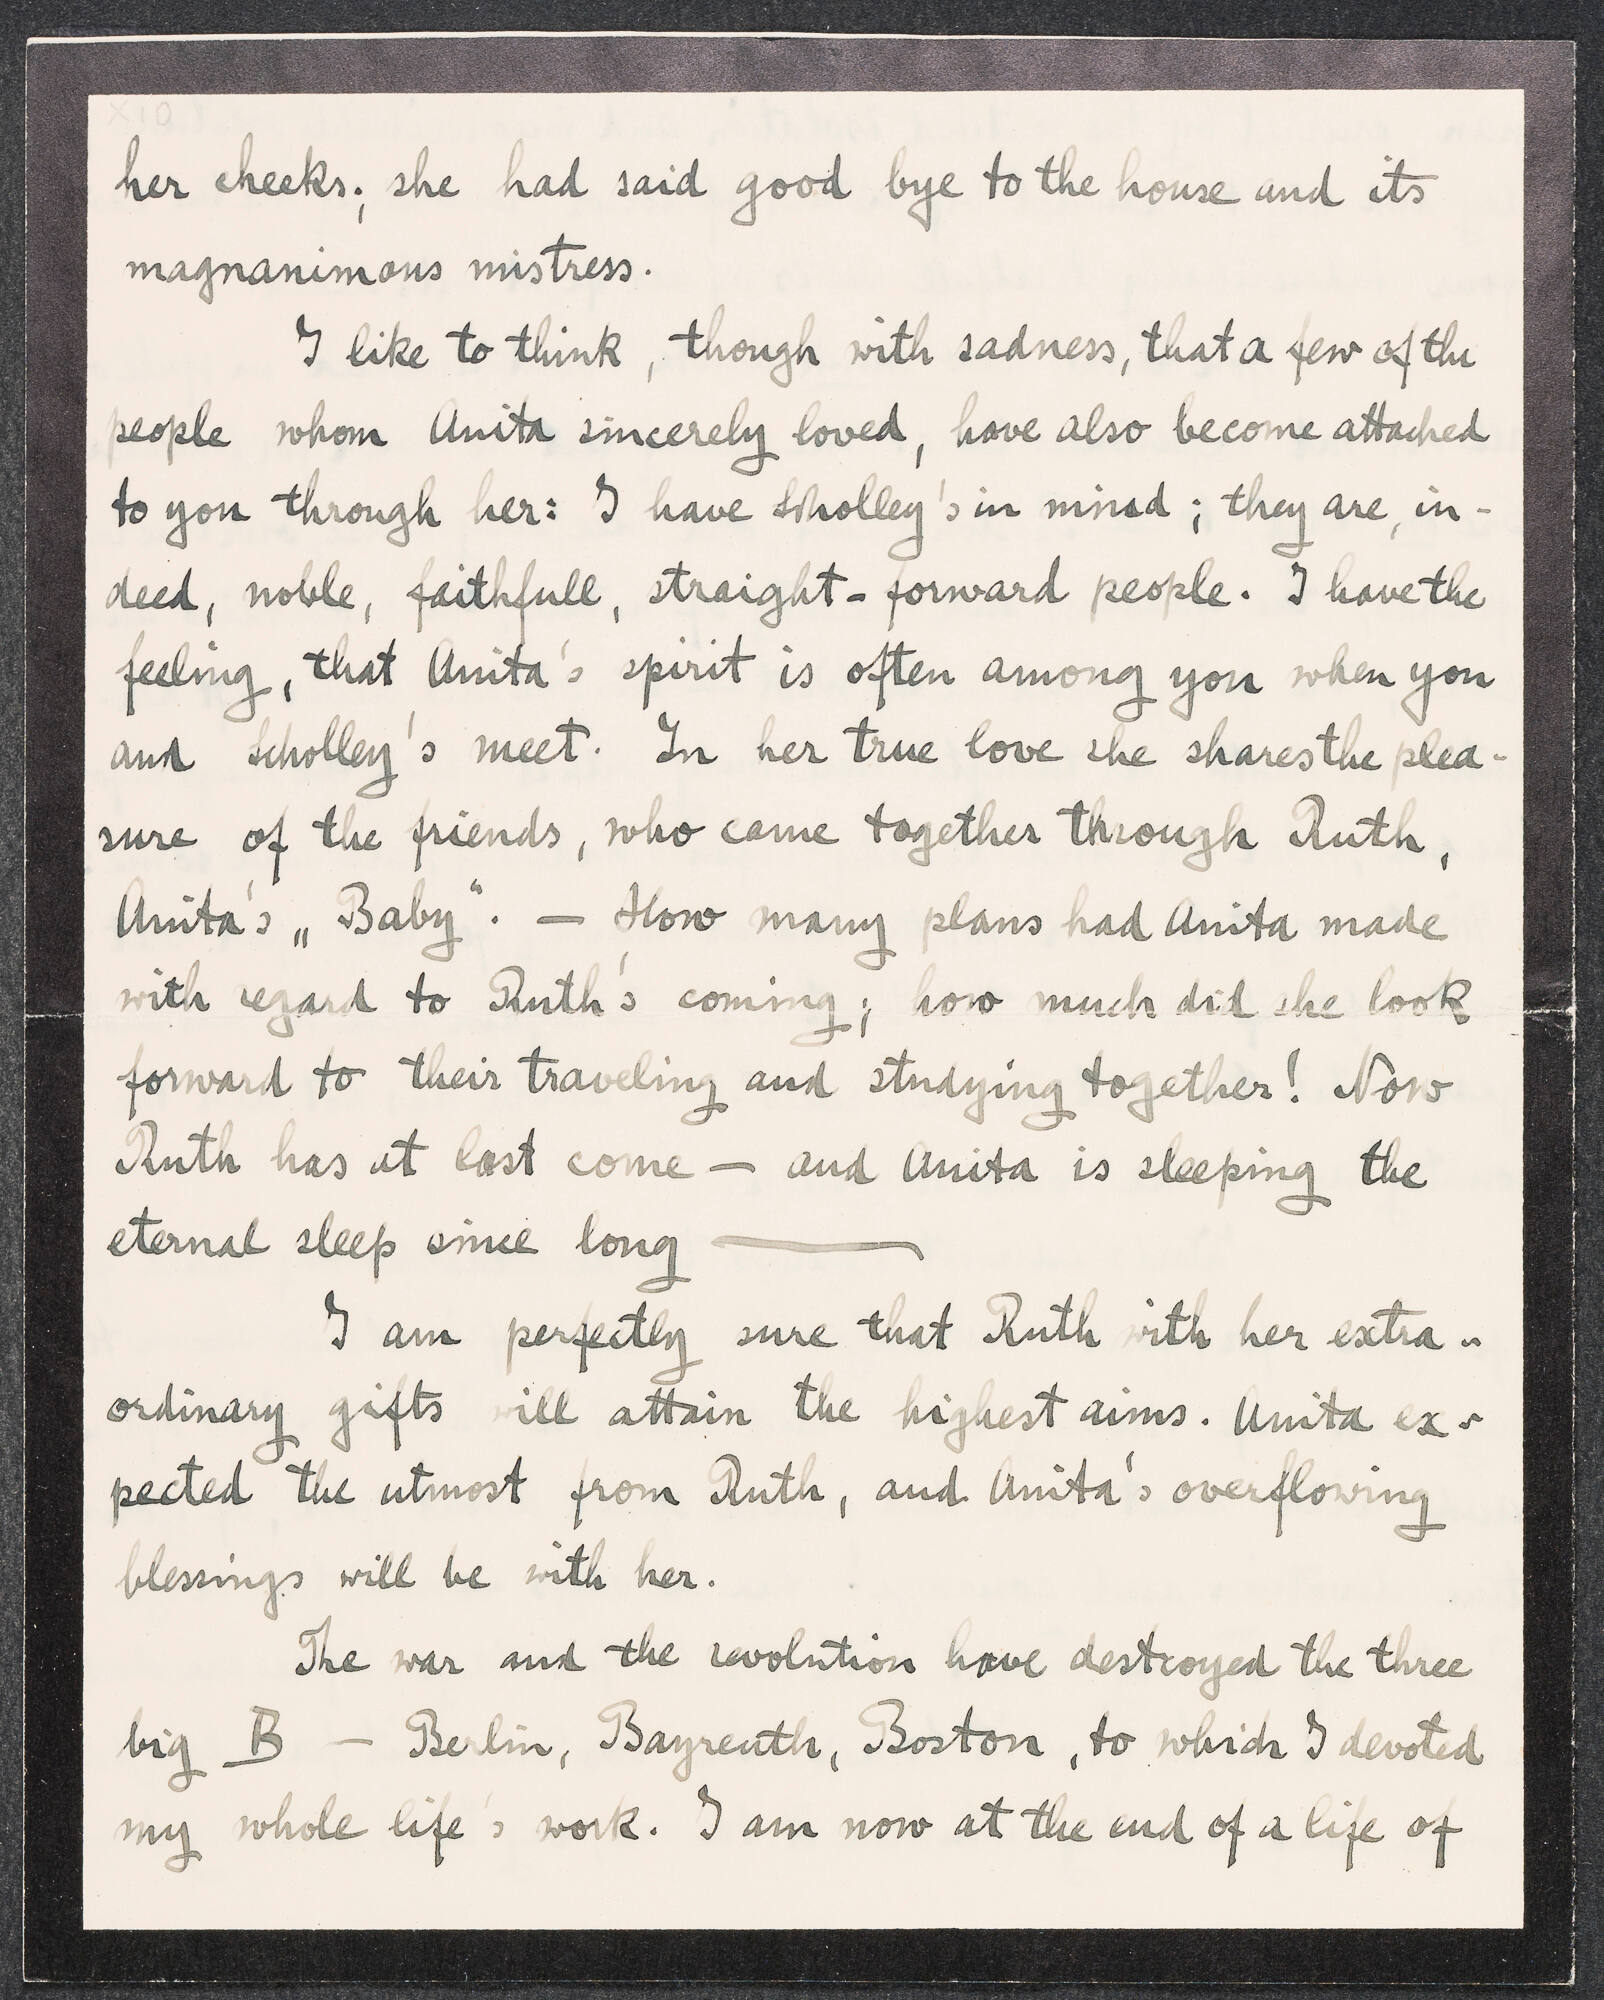 her cheeks; she had said good bye to the house and its
magnanimous mistress.
I like to think, though with sadness, that a few of the
people whom Anita sincerely loved, have also become attached
to you through her: I have Scholley's in mind; they are, in-
deed, noble, faithfull, straight-forward people. I have the
feeling, that Anita's spirit is often among you when you
and Scholley's meet. In her true love she shares the plea-
sure of the friends, who came together through Ruth,
Anita's „Baby“. — How many plans had Anita made
with regard to Ruth's coming; how much did she look
forward to their traveling and studying together! Now
Ruth has at last come — and Anita is sleeping the
eternal sleep since long —
I am perfectly sure that Ruth with her extra-
ordinary gifts will attain the highest aims. Anita ex-
pected the utmost from Ruth, and Anita's overflowing
blessings will be with her.
The war and the revolution have destroyed the three
big B — Berlin, Bayreuth, Boston, to which I devoted
my whole life's work. I am now at the end of a life of